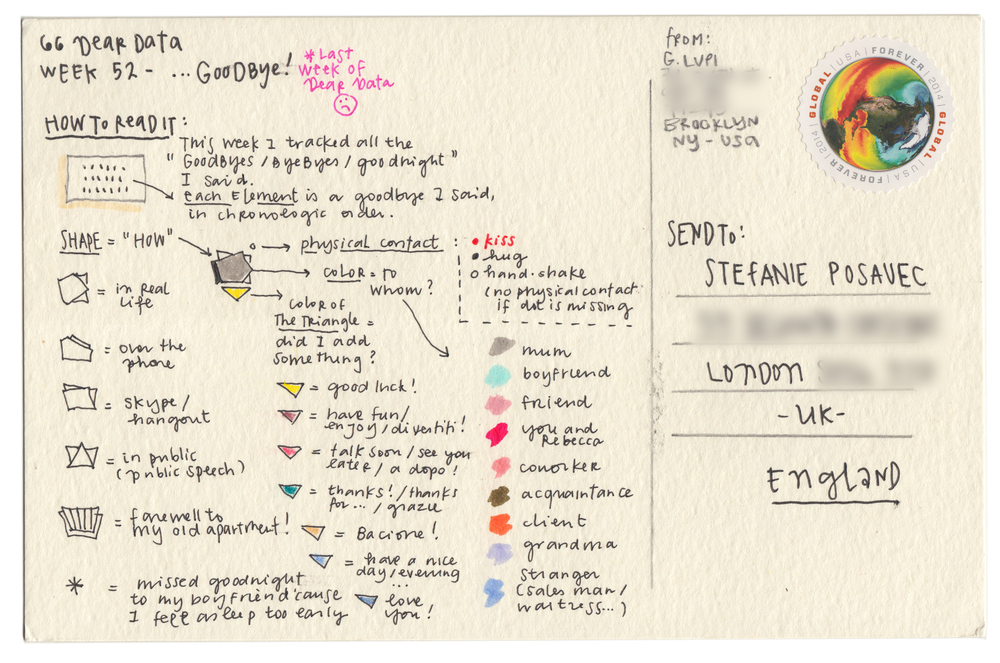 66 Dear Data
WEEK 52 - ... GOODBYE!
*Last
week of
Dear Data
HOW TO READ IT:
This week I tracked all the
"GOODByes / ByeByes / goodnight"
I said.
each Element is a goodbye I said,
in chronologic order.
SHAPE = "HOW"
= in Real
life
= over the
phone
= SKYPE /
hangout
= in public
(public speech)
= farewell to
my old apartment!
* = missed goodnight
to my boyfriend 'cause
I fell asleep too early
physical contact :
• kiss
• hug
o hand-shake
(no physical contact
if dot is missing
COLOR = TO
WHOM?
COLOR OF
The TRIANGLE =
did I add
something?
= good luck!
= have fun/
enjoy/divertiti!
= talk soon / see you
later / a dopo!
= thanks! / thanks
for... / grazie
= Bacione!
= have a nice
day/evening
...
= love
you!
mum
boyfriend
friend
you and
Rebecca
coworker
acquaintance
client
grandma
Stranger
(sales man /
waitress...)
FROM:
G. LUPI
BROOKLYN
NY - USA
GLOBAL | USA | FOREVER | 2014 | GLOBAL | USA | FOREVER | 2014
SEND TO:
STEFANIE POSAVEC
LONDON
- UK -
ENGLAND